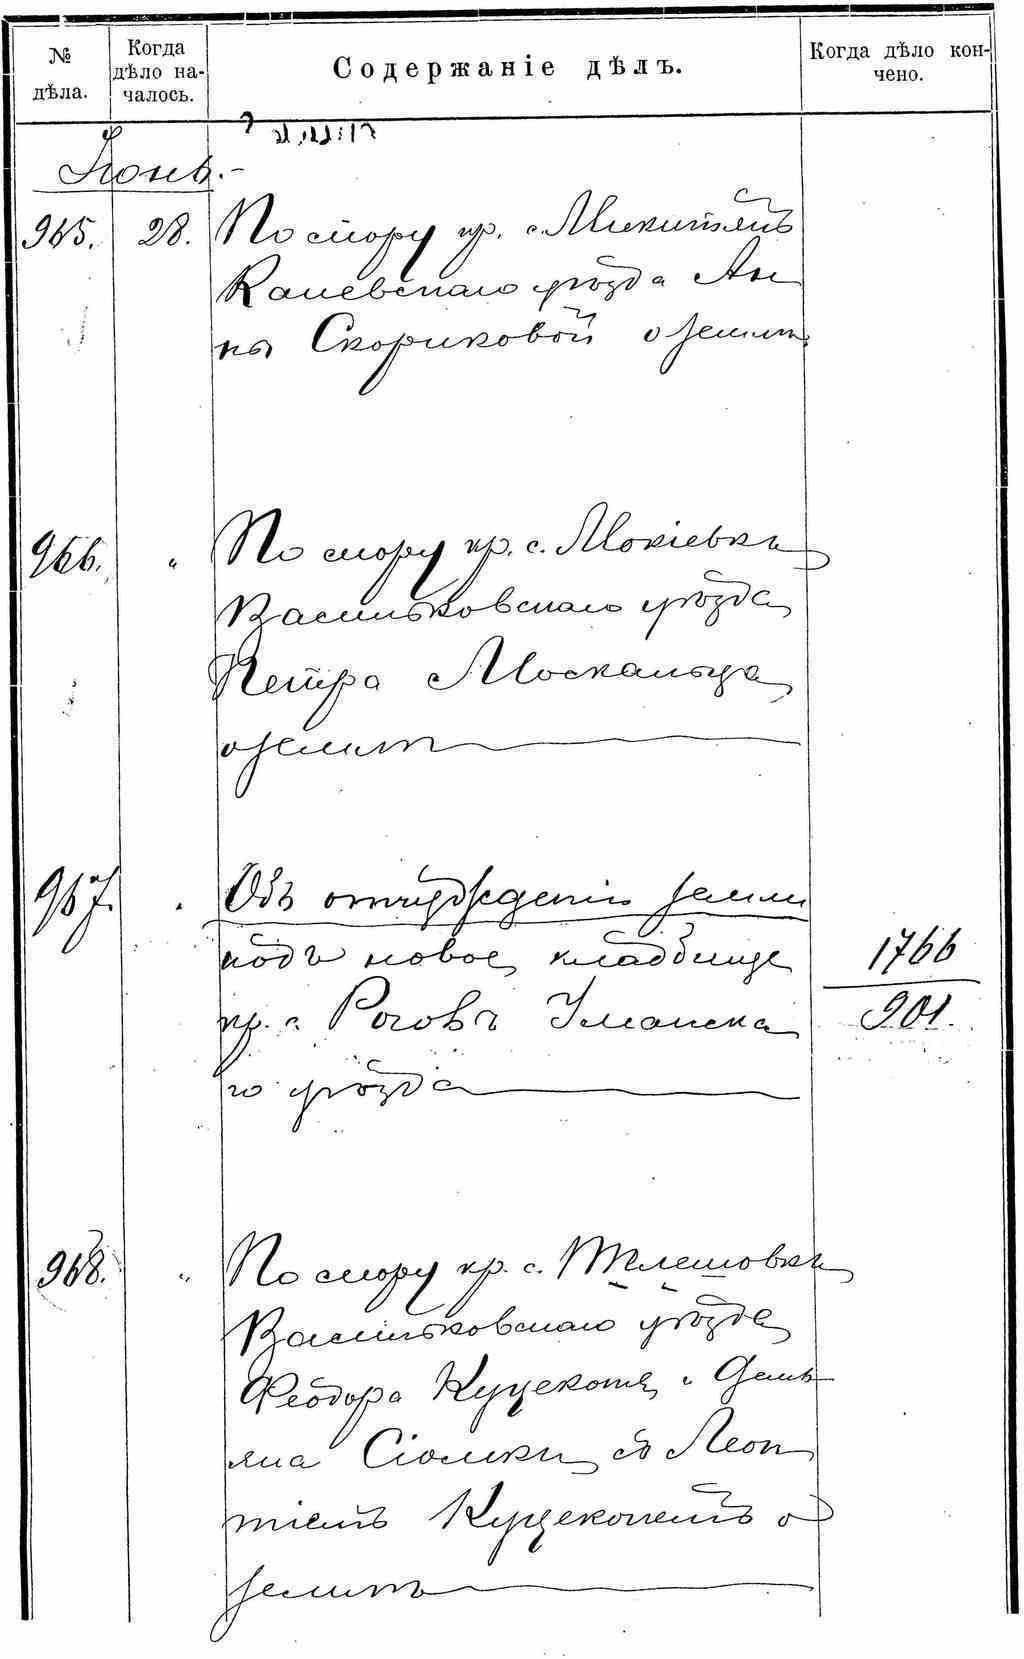 № дѣла.
Когда дѣло на-
чалось.
Содержаніе дѣлъ.
Когда дѣло кон-
чено.
Іюнь.
965. 28. По спору кр. с. Микитянъ
Каневскаго уѣзда Ан
ны Скориковой о землѣ
966. " По спору кр. с. Мокіевки
Васильковскаго уѣзда
Петра Москальца
о землѣ
967. " Объ отчужденіи земли
подъ новое кладбище
кр. с. Роговъ Уманска
го уѣзда
1766
901.
968. " По спору кр. с. Телешовки
Васильковскаго уѣзда
Феодора Куцекона и Демь
яна Сіомки съ Леон
тіемъ Куцекономъ о
землѣ